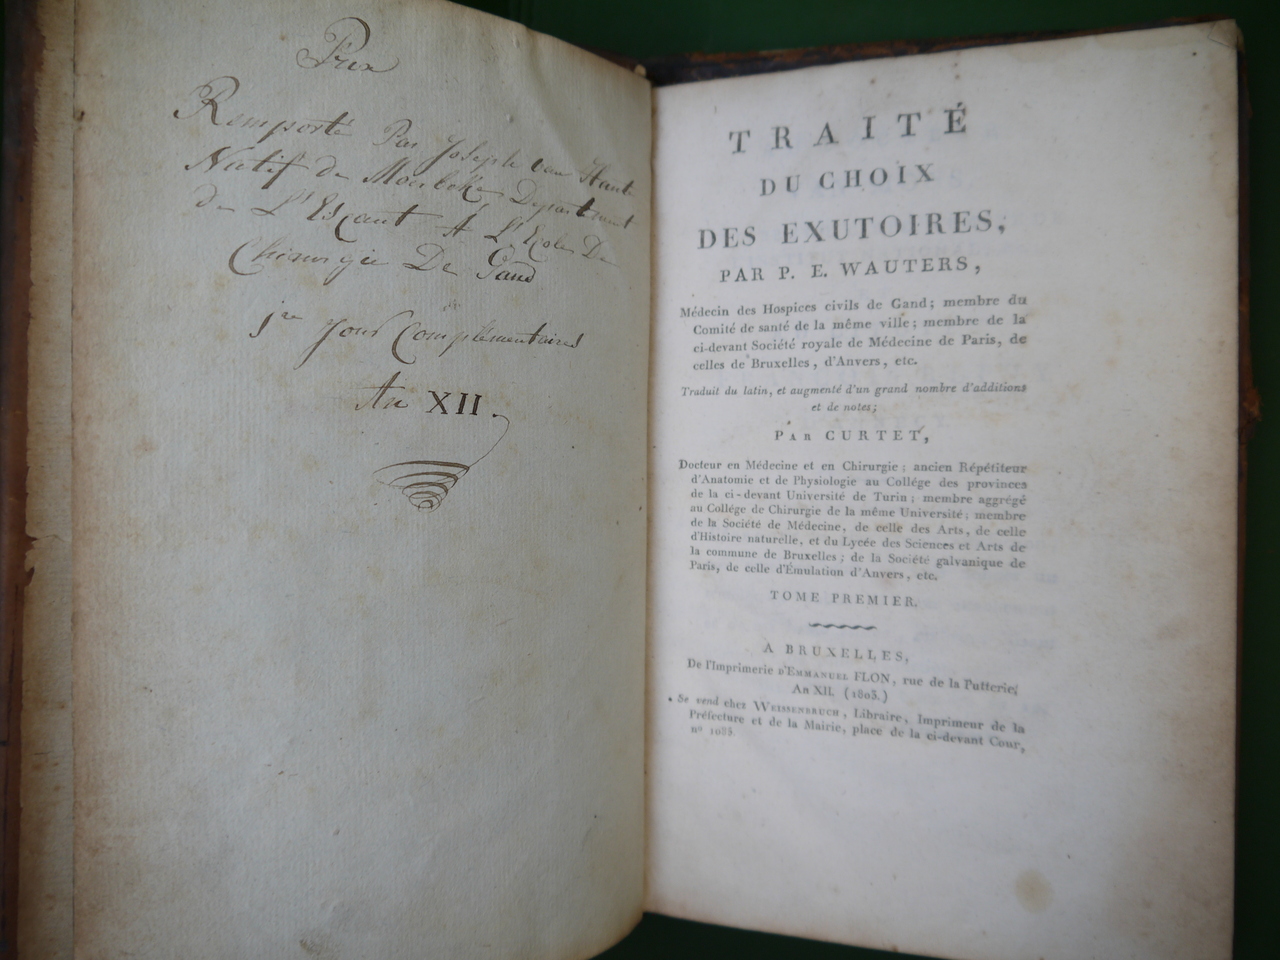 Prix
Remporté Par Joseph van Haute
Natif de Moerbeke Departement
de L'Escaut A L'Ecole De
Chirurgie De Gand
1re Jour Complementaires
An XII.
TRAITÉ
DU CHOIX
DES EXUTOIRES,
PAR P. E. WAUTERS,
Médecin des Hospices civils de Gand; membre du
Comité de santé de la même ville; membre de la
ci-devant Société royale de Médecine de Paris, de
celles de Bruxelles, d'Anvers, etc.
Traduit du latin, et augmenté d'un grand nombre d'additions
et de notes;
PAR CURTET,
Docteur en Médecine et en Chirurgie; ancien Répétiteur
d'Anatomie et de Physiologie au Collége des provinces
de la ci-devant Université de Turin; membre aggrégé
au Collége de Chirurgie de la même Université; membre
de la Société de Médecine, de celle des Arts, de celle
d'Histoire naturelle, et du Lycée des Sciences et Arts de
la commune de Bruxelles; de la Société galvanique de
Paris, de celle d'Émulation d'Anvers, etc.
TOME PREMIER.
A BRUXELLES,
De l'Imprimerie D'EMMANUEL FLON, rue de la Putterie,
AN XII. (1803.)
Se vend chez WEISSENBRUCH, Libraire, Imprimeur de la
Préfecture et de la Mairie, place de la ci-devant Cour,
nº 1085.